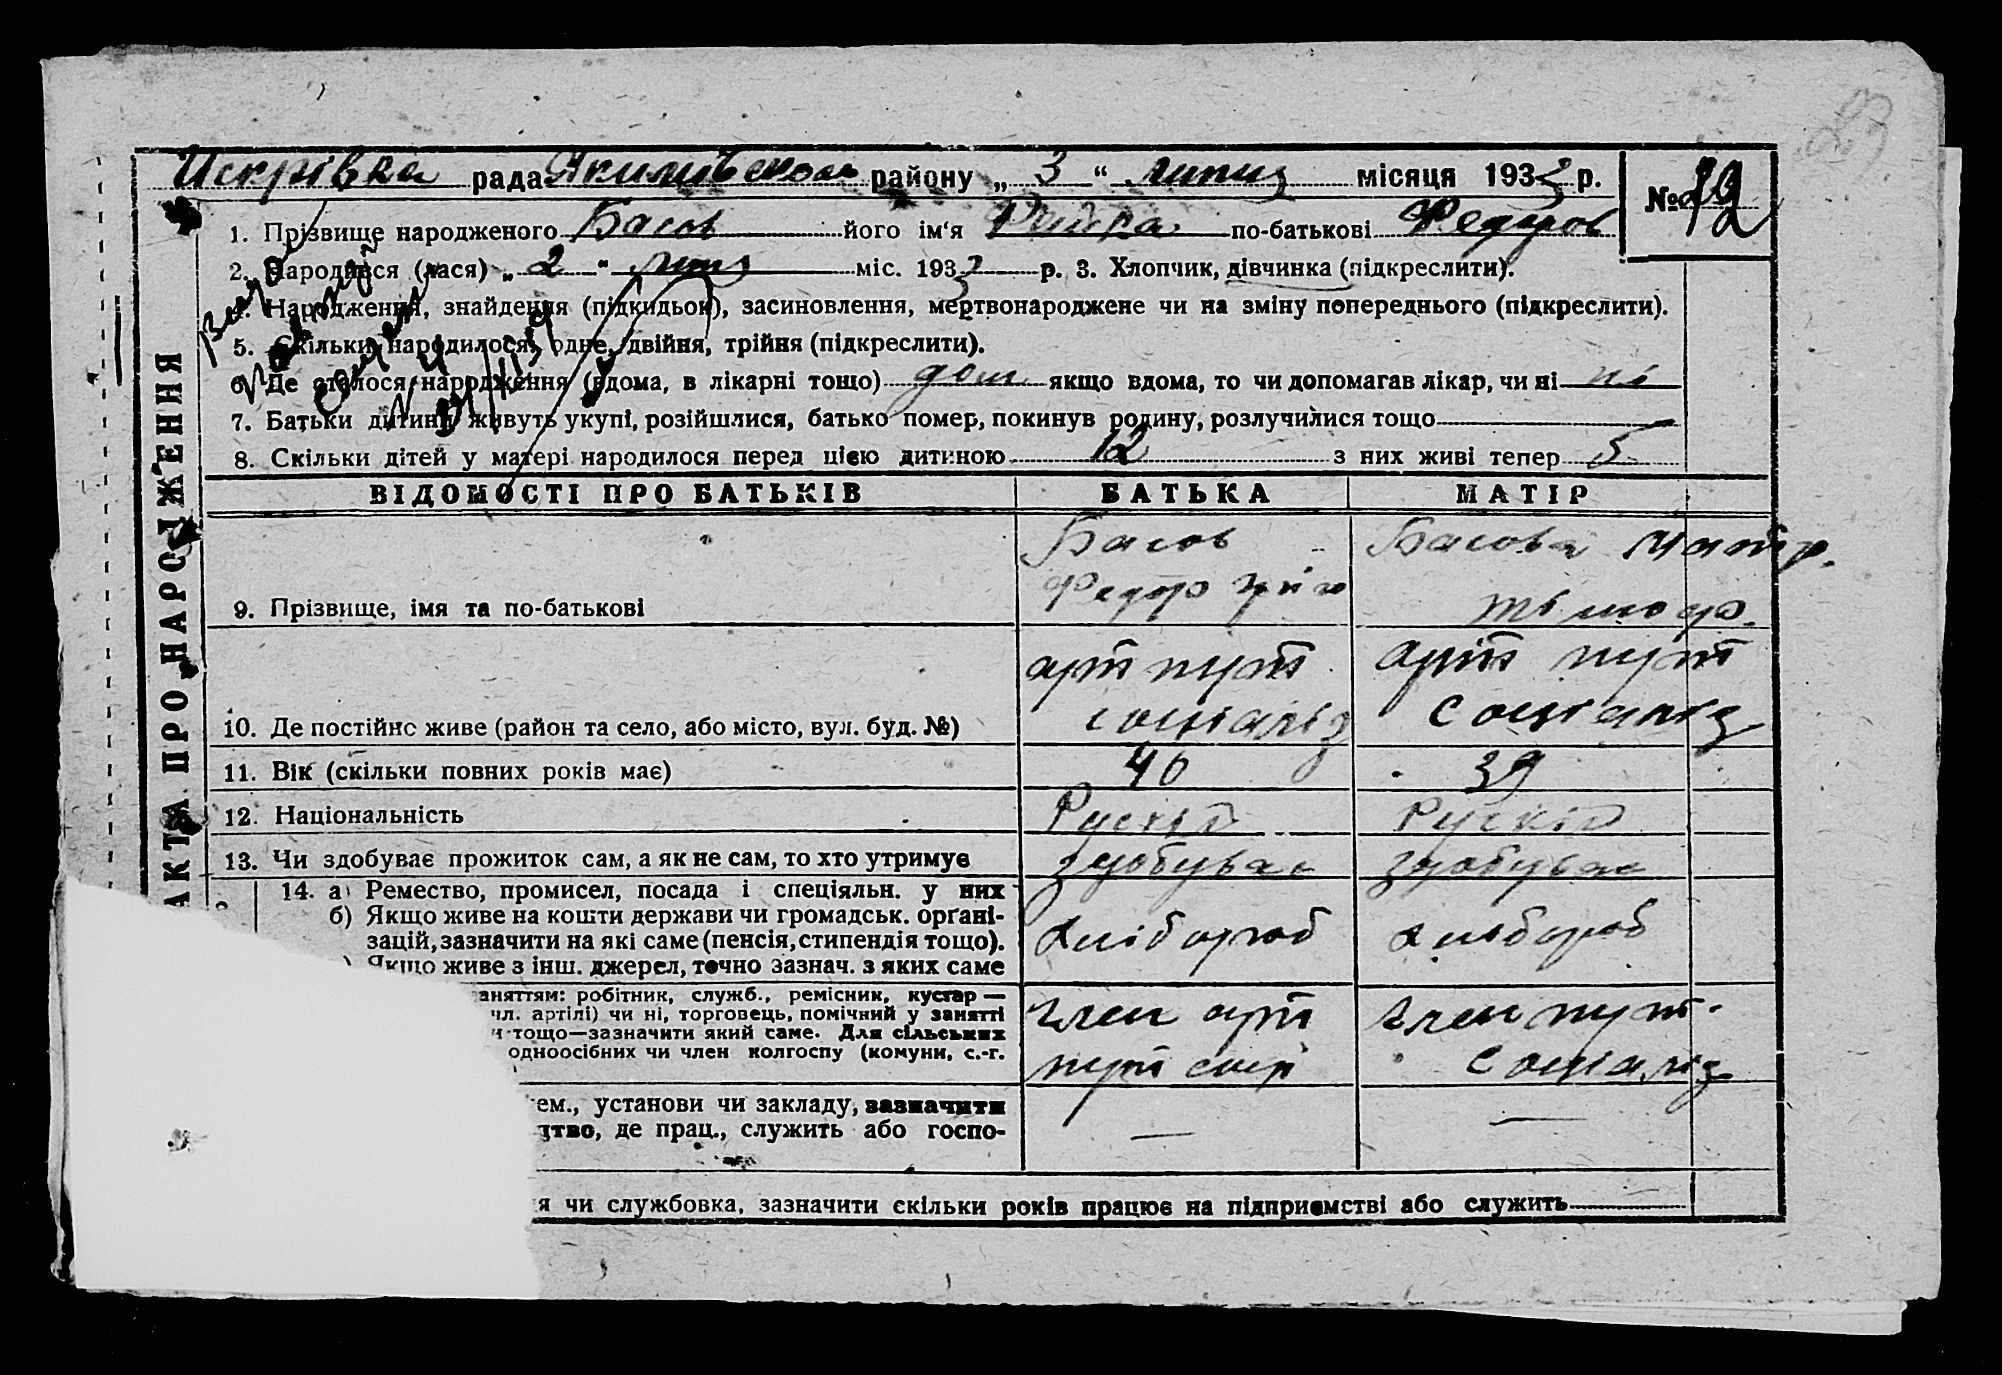 Искрівка рада Якимівском району „ 3 “ липня місяця 193 р.
№
1. Прізвище народженого Басов його ім'я по-батькові Федоров
2. Народився (лася) „ 2 “ липня міс. 193 р. 3. Хлопчик, дівчинка (підкреслити).
4. Народження, знайдення (підкидьок), засиновлення, мертвонароджене чи на зміну попереднього (підкреслити).
5. Скільки народилося, одне, двійня, трійня (підкреслити).
6. Де сталося народження (вдома, в лікарні тощо) дом якщо вдома, то чи допомагав лікар, чи ні ні
7. Батьки дитини живуть укупі, розійшлися, батько помер, покинув родину, розлучилися тощо
8. Скільки дітей у матері народилося перед цією дитиною 12 з них живі тепер 5
АКТА ПРО НАРОДЖЕННЯ
ВІДОМОСТІ ПРО БАТЬКІВ БАТЬКА МАТІР
Басов Басова
Федор
9. Прізвище, імя та по-батькові
арт пут арт пут
10. Де постійно живе (район та село, або місто, вул. буд. №) соціаліз соціаліз
11. Вік (скільки повних років має) 46 39
12. Національність Рускій Рускій
13. Чи здобуває прожиток сам, а як не сам, то хто утримує здобуває здобуває
14. а) Ремество, промисел, посада і спеціяльн. у них
б) Якщо живе на кошти держави чи громадськ. орґані-
зацій, зазначити на які саме (пенсія, стипендія тощо). хлібороб хлібороб
Якщо живе з інш. джерел, точно зазнач. з яких саме
аняттям: робітник, служб., ремісник, кустар —
чл. артілі) чи ні, торговець, помічний у занятті член арт член пут.
и тощо—зазначити який саме. Для сільських
одноосібних чи член колгоспу (комуни, с.-г. пут соц соціаліз
ем., установи чи закладу, зазначити
цтво, де прац., служить або госпо- — —
я чи службовка, зазначити скільки років працює на підприємстві або служить